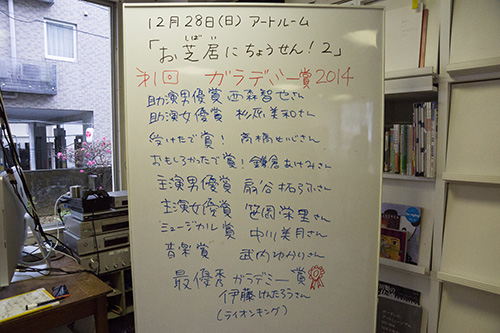 12月28日(日) アートルーム
「お芝居にちょうせん!2」
しばい
第1回 ガラデミー賞2014
助演男優賞 西森智也さん
助演女優賞 杉原美和さん
受けたで賞! 高橋せいじさん
おもしろかったで賞! 鎌倉あけみさん
主演男優賞 扇谷拓弥さん
主演女優賞 笹岡栄里さん
ミュージカル賞 中川美月さん
音楽賞 武内ゆかりさん
最優秀ガラデミー賞
伊藤けんたろうさん
(ライオンキング)